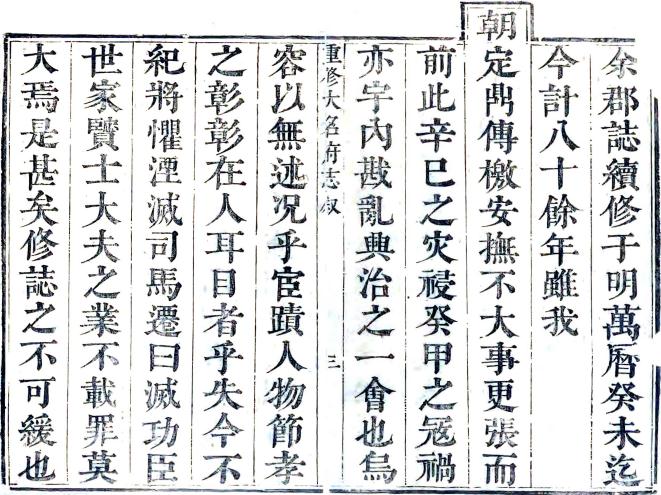 余郡誌續修于明萬曆癸未迄
今計八十餘年雖我
朝定鼎傳檄安撫不大事更張而
前此辛巳之灾祲癸甲之寇禍
亦宇內戡亂興治之一會也烏
重修大名府志敘 三
容以無述况乎宦蹟人物節孝
之彰彰在人耳目者乎失今不
紀將懼湮滅司馬遷曰滅功臣
世家賢士大夫之業不載罪莫
大焉是甚矣修誌之不可緩也